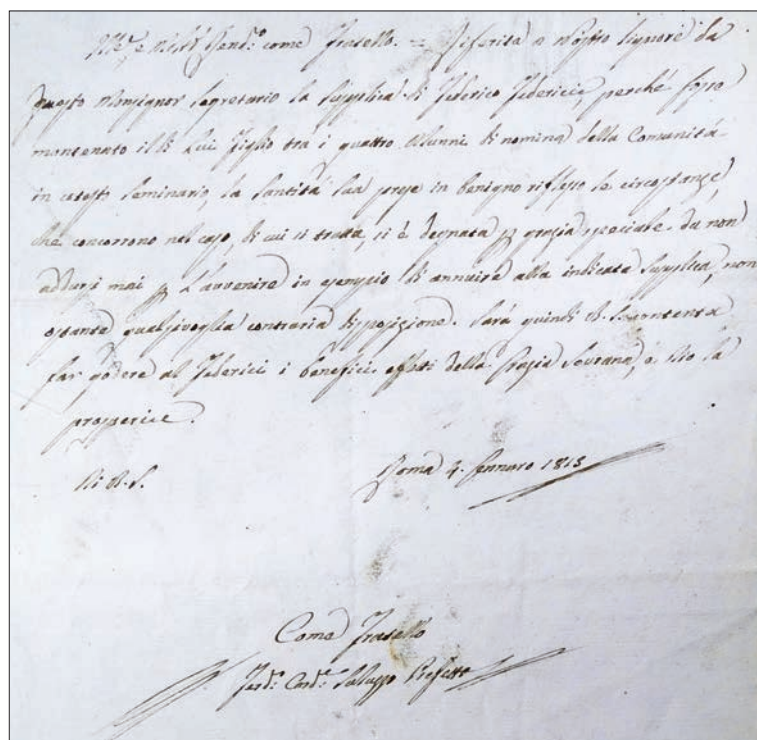 Ill.e e Rev.mo Sig.re come Fratello. = Riferita a Nostro Signore da
questo Monsignor Segretario la supplica di Federico Federici, perché fosse
mantenuto il di Lui Figlio tra i quattro Alunni di nomina della Comunità
in cotesto Seminario, la Santità Sua prese in benigno riflesso le circostanze,
che concorrono nel caso, di cui si tratta, si è degnata p grazia speciale da non
addursi mai p l'avvenire in esempio di annuire alla indicata supplica, non
ostante qualsivoglia contraria disposizione. Sarà quindi V. S. contenta
far godere al Federici i benefici effetti della Grazia Sovrana, e Dio la
prosperi.
Di V. S.
Roma 4. Gennaro 1815
Come Fratello
Ferd. Card. Saluzzo Prefetto